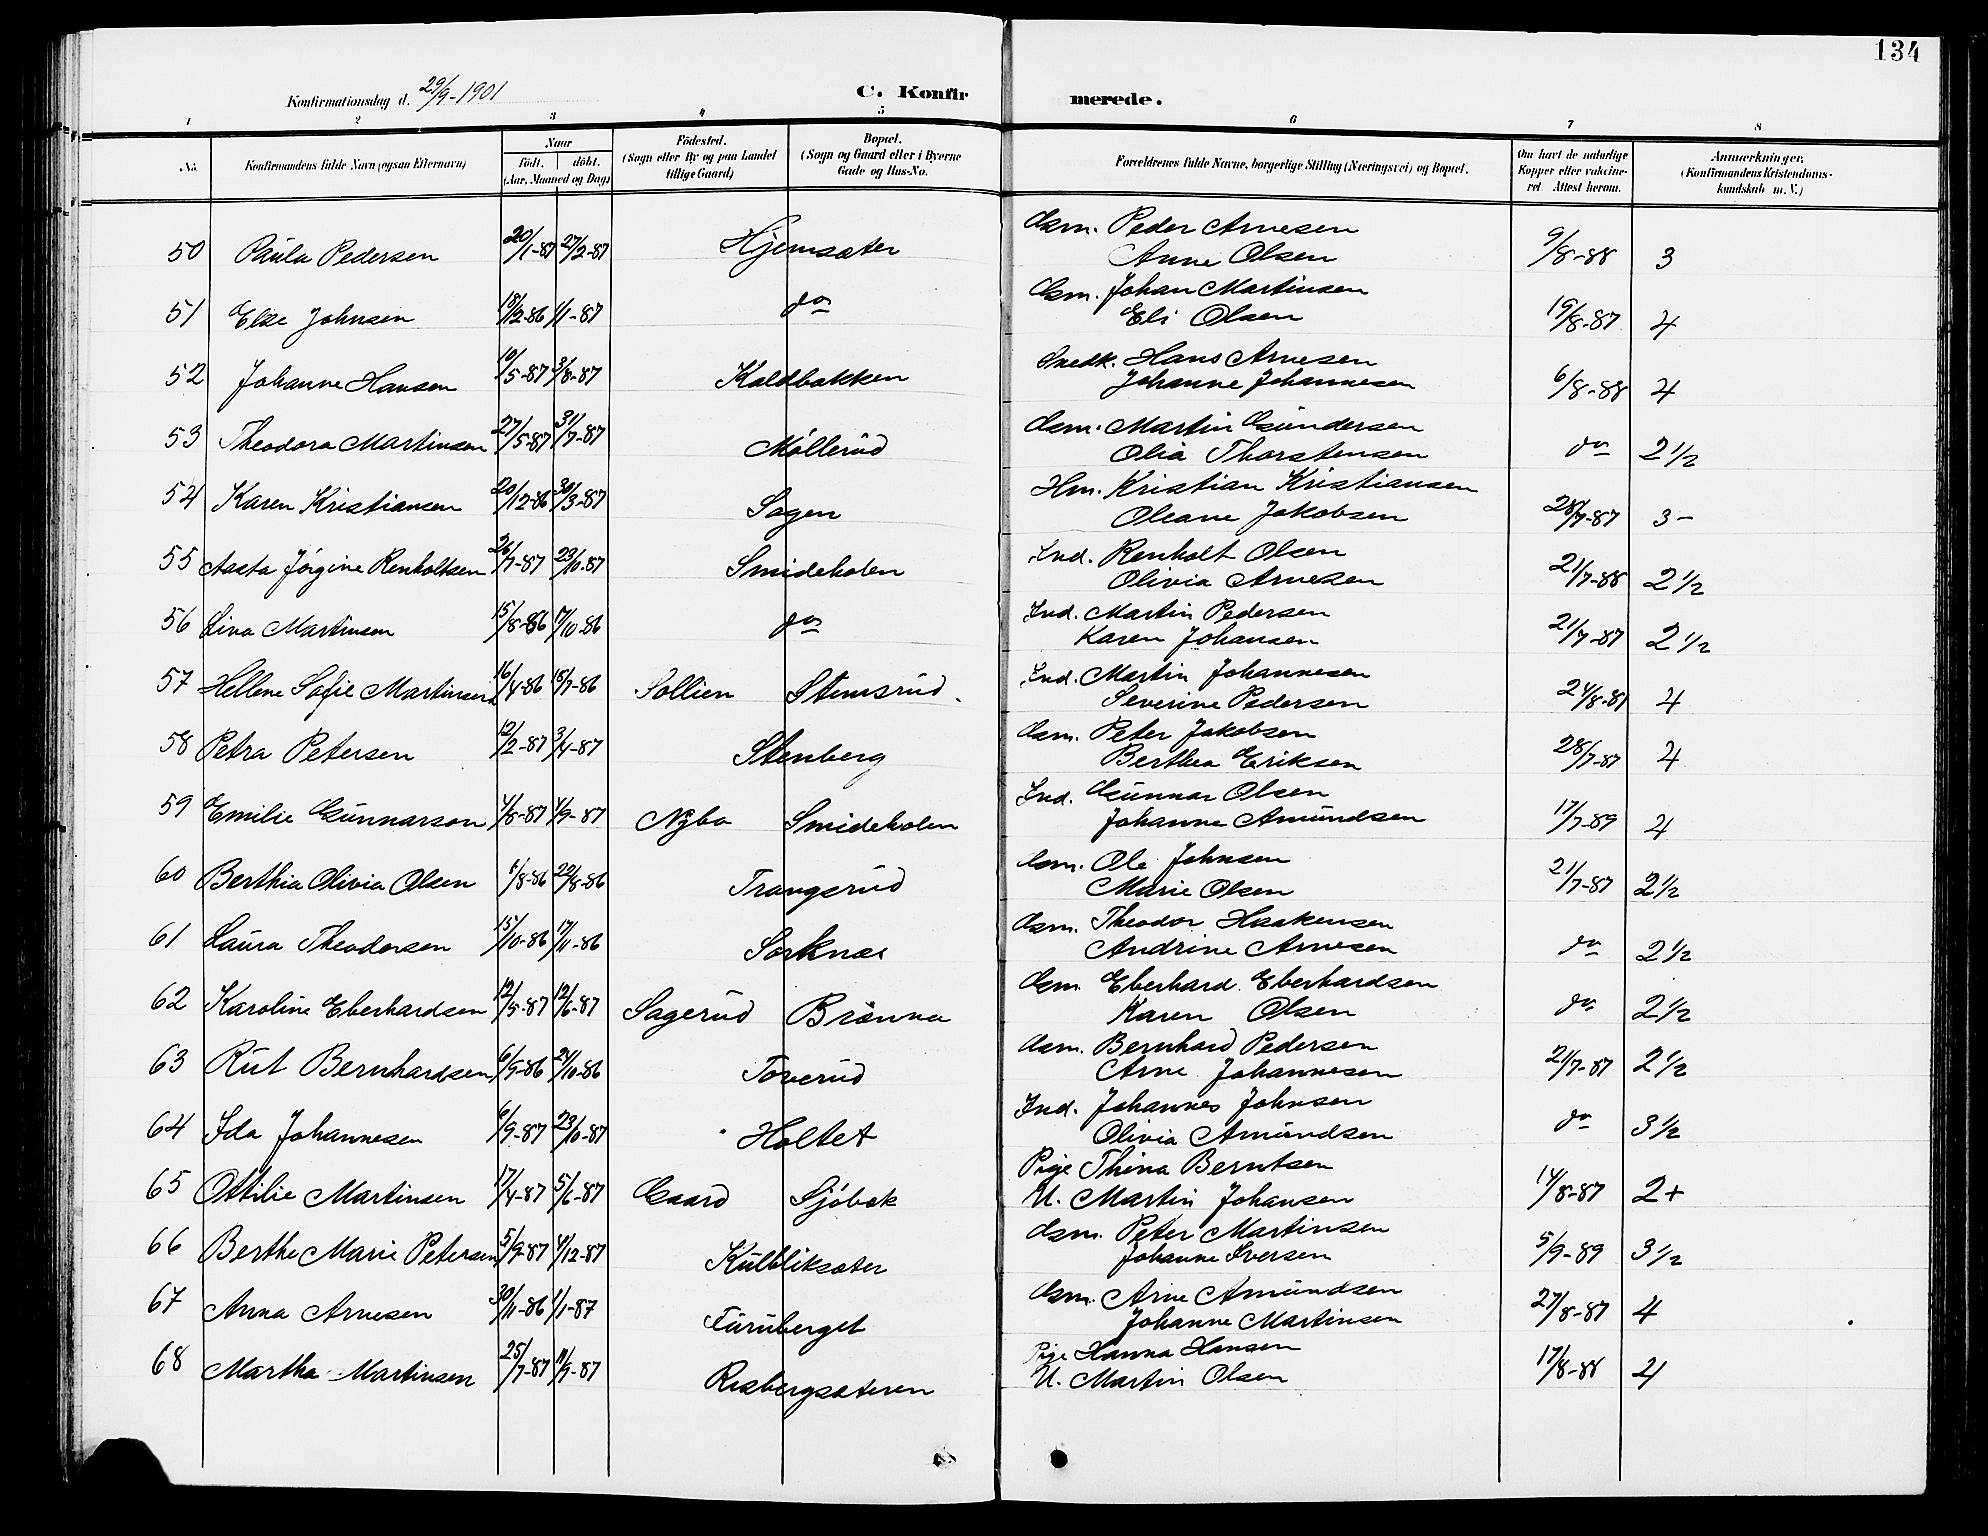 134
Konfirmationsdag d. 29/9-1901
C. Konfirmerede.
1 2 3 4 5 6 7 8
No. Konfirmandens fulde Navn (ogsaa Efternavn) Naar født. døbt. (Aar, Maaned og Dag) Födested. (Sogn eller By og paa Landet tillige Gaard) Bopæl. (Sogn og Gaard eller i Byerne Gade og Hus-No. Forældrenes fulde Navne, borgerlige Stilling (Næringsvei) og Bopæl. Om havt de naturlige Kopper eller vakcineret. Attest herom. Anmærkninger, (Konfirmandens Kristendomskundskab m. V.)
50 Paula Pedersen 20/1-87 27/2-87 Hjemsæter Gsm. Peder Arnesen 9/8-88 3
Anne Olsen
51 Else Johnsen 18/12-86 1/1-87 do Gsm. Johan Martinsen 19/8-87 4
Eli Olsen
52 Johanne Hansen 10/5-87 3/8-87 Koldbakken Snedk. Hans Arnesen 6/8-88 4
Johanne Johannesen
53 Theodora Martinsen 27/5-87 31/7-87 Möllerud Gsm. Martin Gundersen do 2 1/2
Olia Thorstensen
54 Karen Kristiansen 20/12-86 30/3-87 Sagen Hm. Kristian Kristiansen 28/7-87 3-
Oleane Jakobsen
55 Aasta Jörgine Renholtsen 26/7-87 23/10-87 Smideholen Ind. Renholt Olsen 21/7-88 2 1/2
Olivia Arnesen
56 Lina Martinsen 15/8-86 17/10-86 do Ind. Martin Pedersen 21/7-87 2 1/2
Karen Johansen
57 Hellene Sofie Martinsen 16/4-86 18/7-86 Sollien Stemsrud Ind. Martin Johannesen 24/8-87 4
Severine Pedersen
58 Petra Petersen 12/2-87 3/4-87 Stenberg Gsm. Peter Jakobsen 28/7-87 4
Berthea Eriksen
59 Emilie Gunnarson 4/8-87 4/9-87 Nybo Smideholen Ind. Gunnar Olsen 17/7-89 4
Johanne Amundsen
60 Berthia Olivia Olsen 1/8-86 22/8-86 Trangsrud Gsm. Ole Johnsen 21/7-87 2 1/2
Marie Olsen
61 Laura Theodorsen 15/10-86 17/11-86 Sorknæs Gsm. Theodor Haakensen do 2 1/2
Andrine Arnesen
62 Karoline Eberhardsen 12/5-87 12/6-87 Sagerud Brönna Gsm. Eberhard Eberhardsen do 2 1/2
Karen Olsen
63 Rut Bernhardsen 6/9-86 24/10-86 Toverud Gsm. Bernhard Pedersen 21/7-87 2 1/2
Arne Johannesen
64 Ida Johannesen 6/9-87 23/10-87 Holtet Ind. Johannes Johnsen do 3 1/2
Olivia Amundsen
65 Ottilie Martinsen 17/4-87 5/6-87 Gaard Sjöbak Pige Thina Berntsen 14/8-87 2+
U. Martin Johansen
66 Berthe Marie Petersen 5/9-87 4/12-87 Kulbliksæter Gsm. Peter Martinsen 5/9-89 3 1/2
Johanne Iversen
67 Anna Arnesen 30/11-86 1/1-87 Furuberget Gsm. Arne Amundsen 27/8-87 4
Johanne Martinsen
68 Martha Martinsen 25/7-87 11/9-87 Risbergsæteren Pige Hanna Hansen 17/8-88 4
U. Martin Olsen